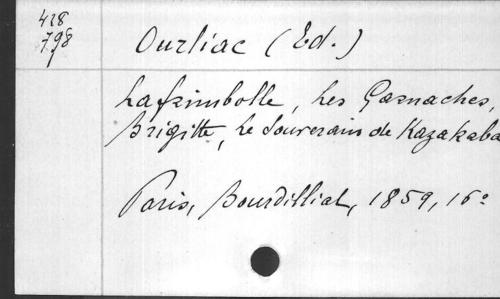 428
798
1
Ourliac (Ed.)
Lafrimbolle, Les Garnaches,
Brigitte, Le Souverain de Kazakaba
Paris, Bourdilliat, 1859, 16º